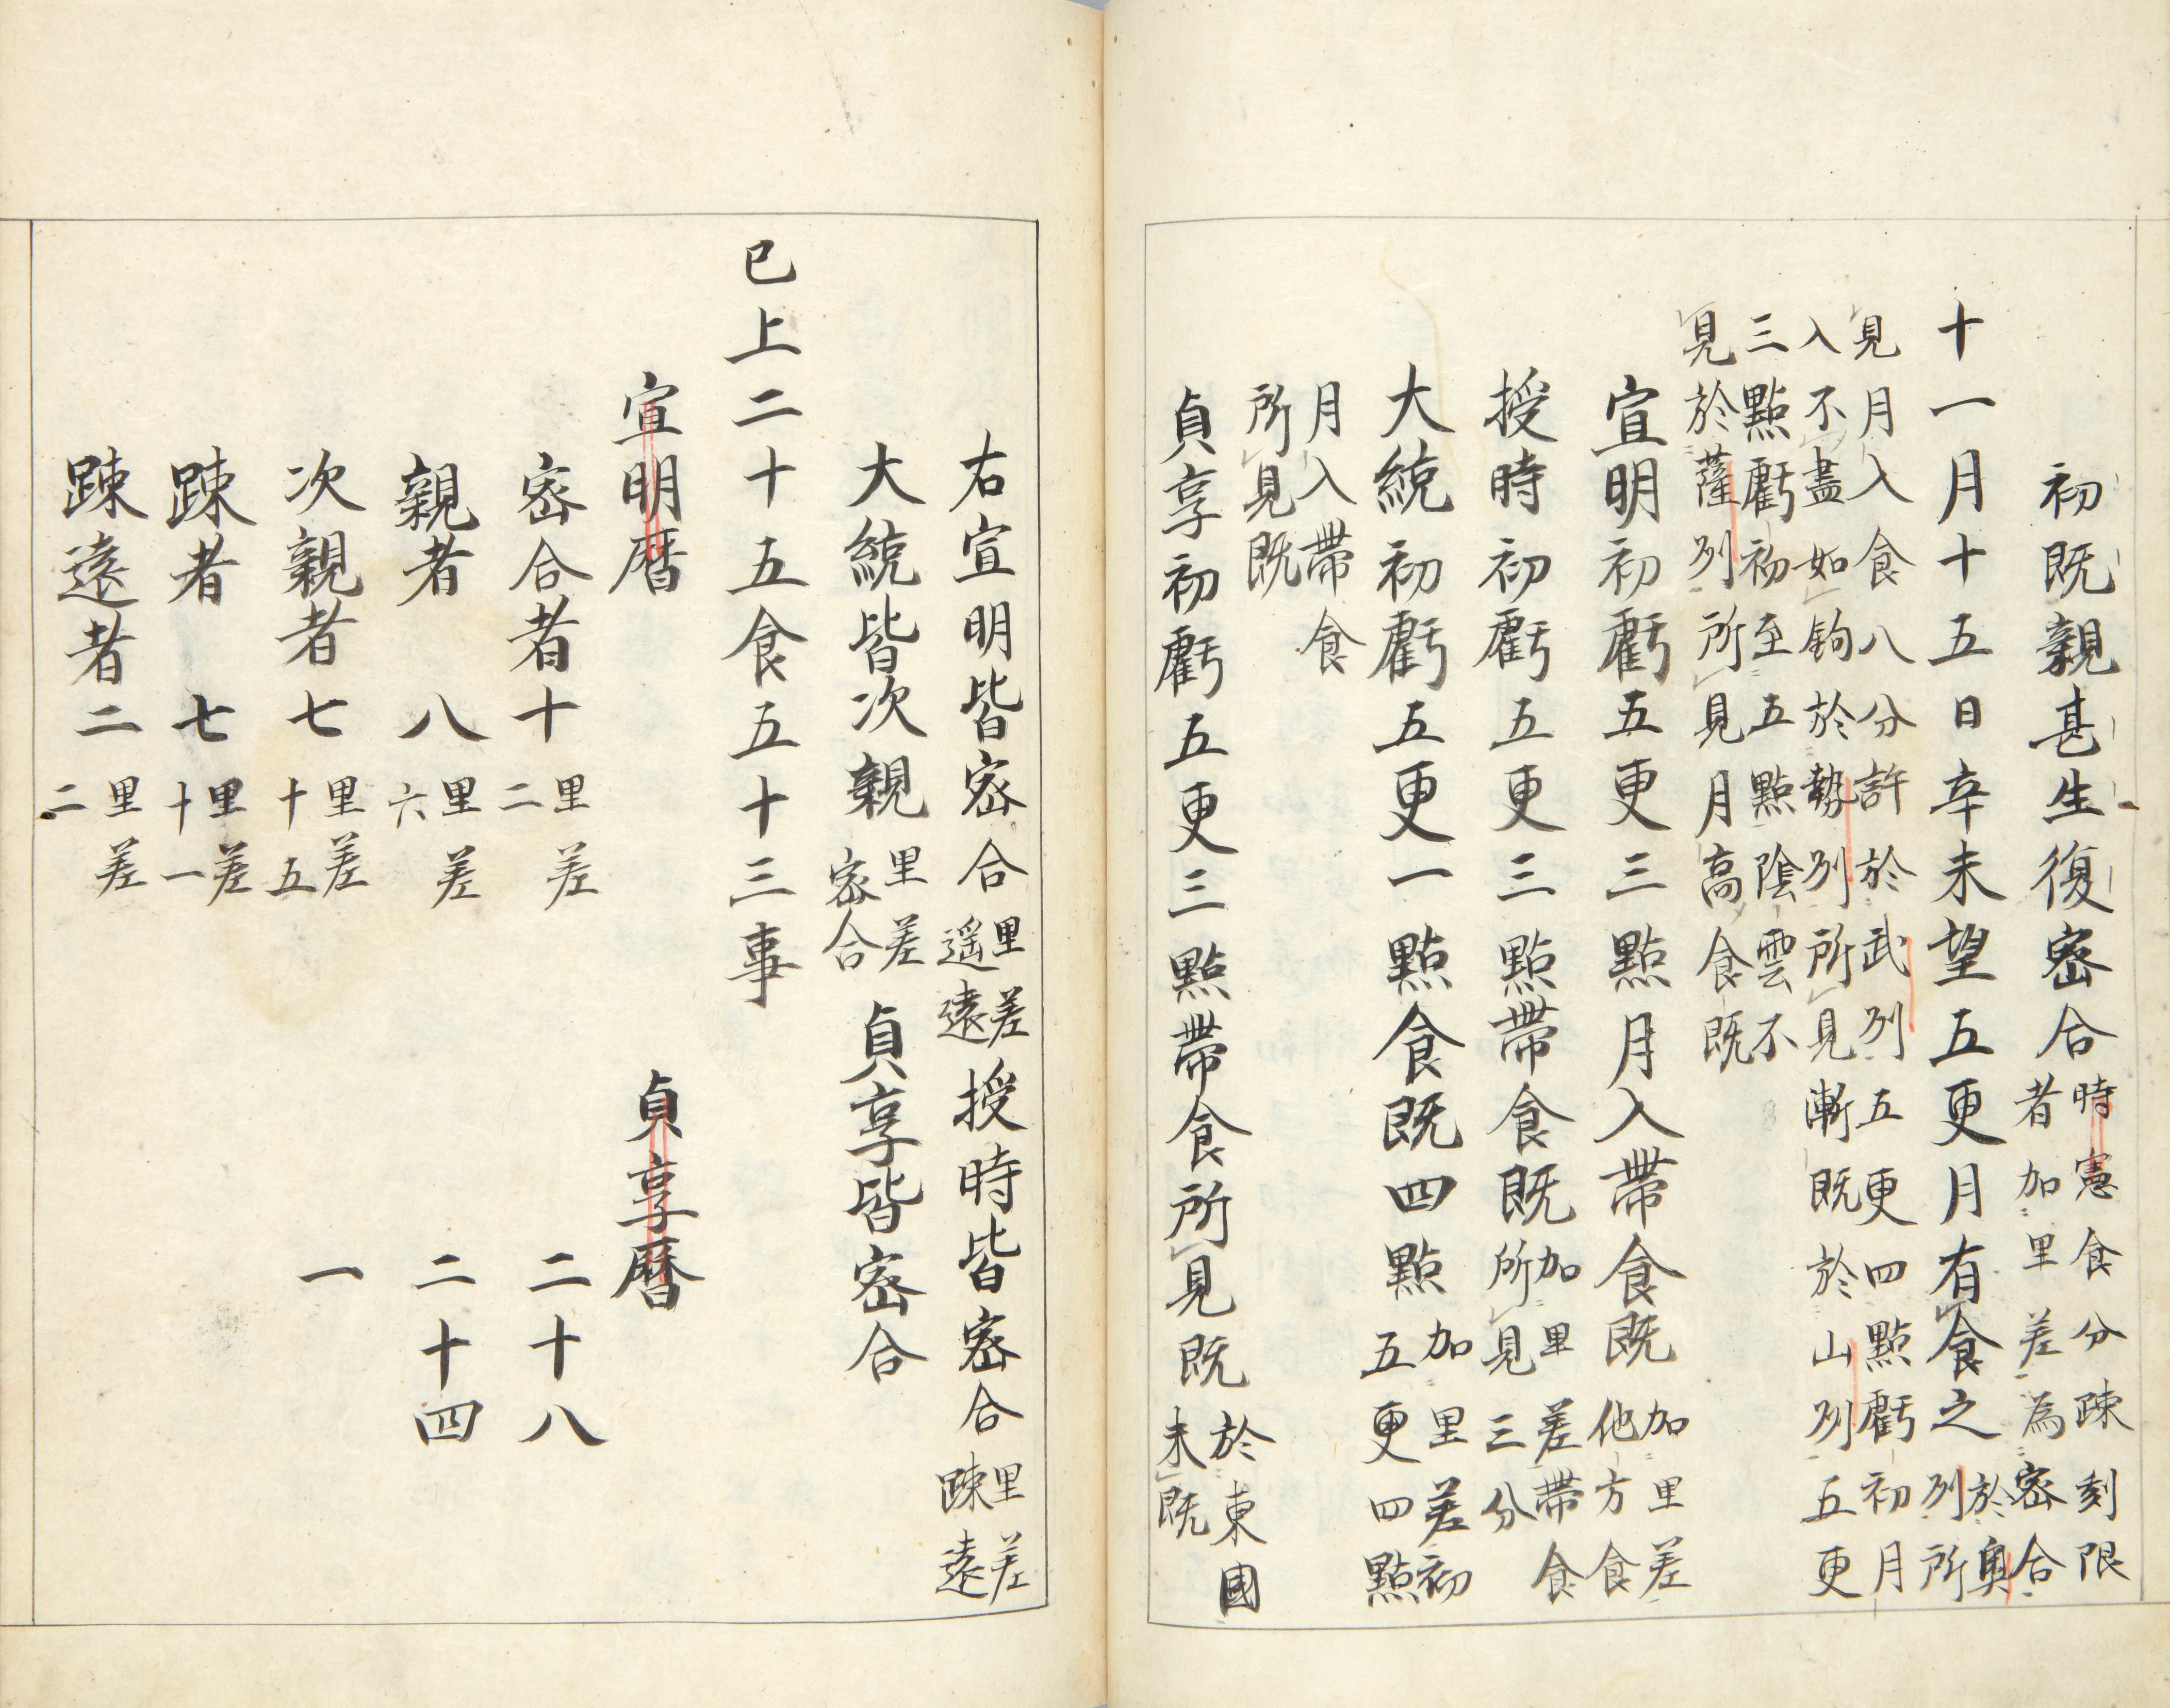 初既親甚生復宻合時憲食分踈刻限
者加里差為宻合
十一月十五日辛未望五更月有食之於奥
列所
見月入食八分許於武列五更四點虧初月
入不盡如鈎於勢列所見漸既於山列五更
三點虧初至五點陰雲不
見於薩列所見月高食既
宣明初虧五更三點月入帶食既加里差
他方食
授時初虧五更三點帶食既加里差帶食
所見三分
大統初虧五更一點食既四點加里差初
五更四點
月入帶食
所見既
貞享初虧五更三點帶食所見既於東國
未既
右宣明皆宻合里差
遥遠授時皆宻合里差
踈遠
大統皆次親里差
宻合貞享皆宻合
已上二十五食五十三事
宣明暦 貞享暦
宻合者十里差
二 二十八
親者 八里差
六 二十四
次親者七里差
十五 一
踈者 七里差
十一
踈遠者二里差
二